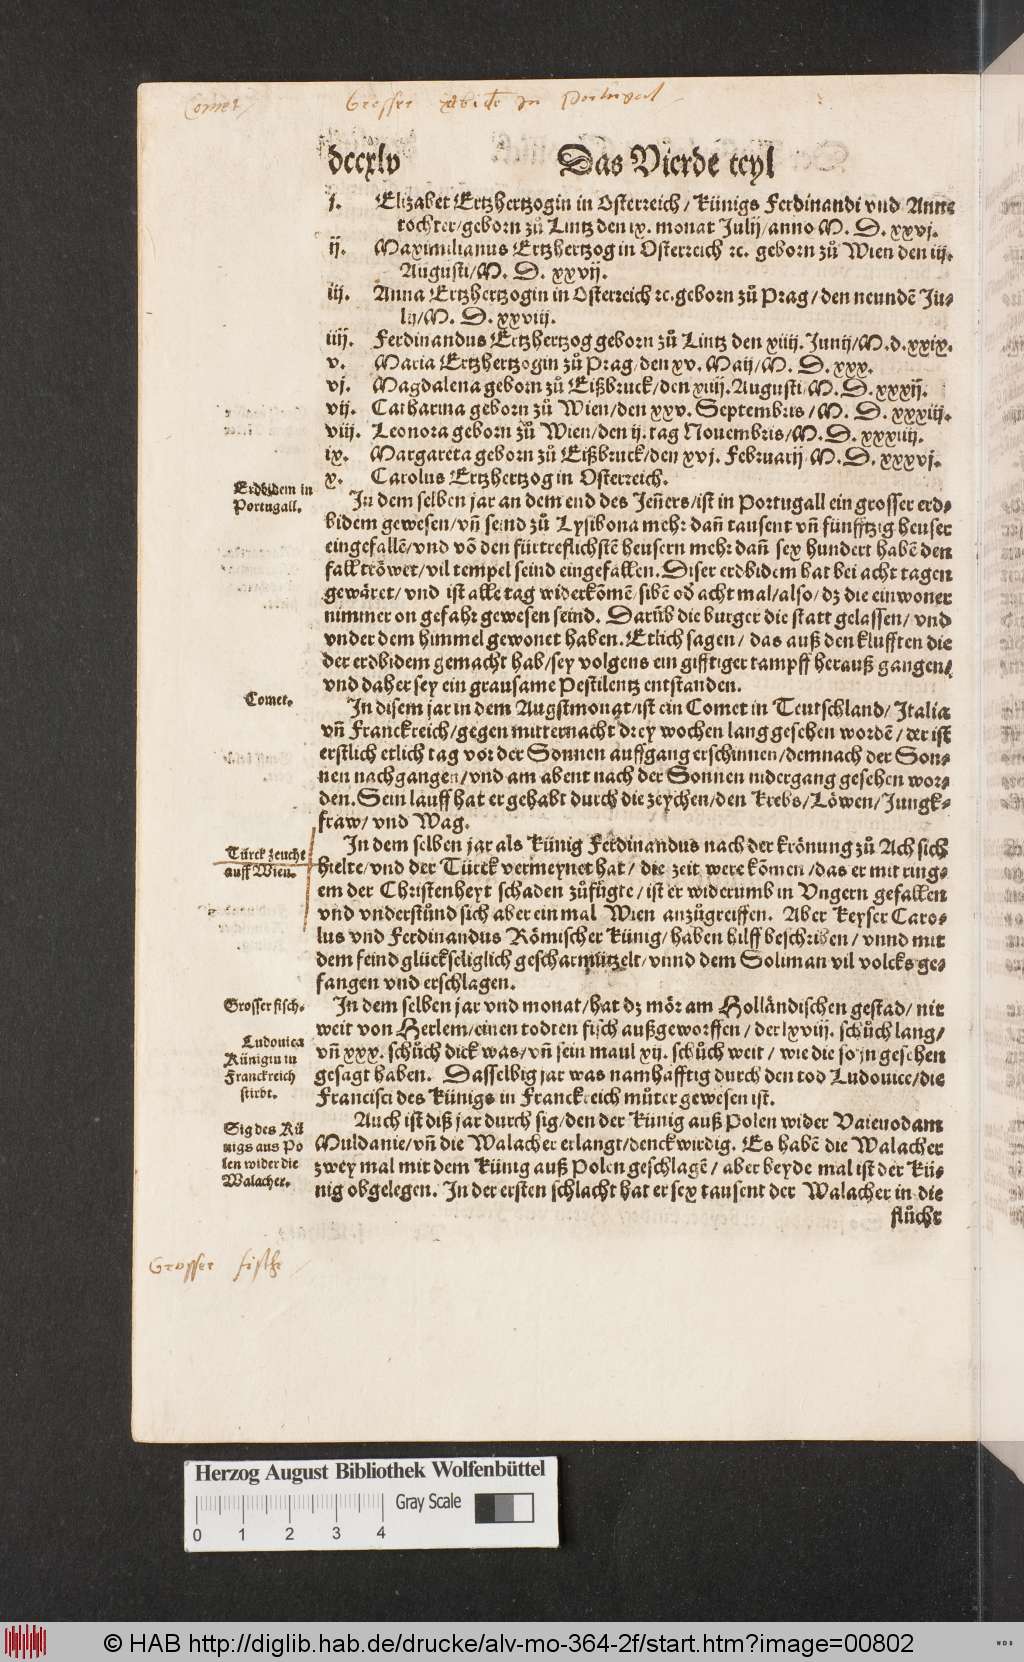 Comet
Grosser erdbidē in Portugal
dccxlv
Das Vierde teyl
j. Elizabet Ertzhertzogin in Osterreich / Künigs Ferdinandi vnd Anne
tochter/geborn zů Lintz den ix. monat Julij/anno M. D. xxvj.
ij. Maximilianus Ertzhertzog in Osterreich ꝛc. geborn zů Wien den iij.
Augusti/M. D. xxvij.
iij. Anna Ertzhertzogin in Osterreich ꝛc. geborn zů Prag/den neundē Ju⸗
lij/M. D. xxviij.
iiij. Ferdinandus Ertzhertzog geborn zů Lintz den xiiij. Junij/M.d.xxix.
v. Maria Ertzhertzogin zů Prag/den xv. Maij/M. D. xxx.
vj. Magdalena geborn zů Eißbruck/den xiiij. Augusti/M. D. xxxij.
vij. Catharina geborn zů Wien/den xxv. Septembris/M. D. xxxiij.
viij. Leonora geborn zů Wien/den ij. tag Nouembris/M. D. xxxiiij.
ix. Margareta geborn zů Eißbruck/den xvj. Februarij M. D. xxxvj.
x. Carolus Ertzhertzog in Osterreich.
Erdbidem in
Portugall.
In dem selben jar an dem end des Jeñers/ist in Portugall ein grosser erd⸗
bidem gewesen/vñ seind zů Lysibona mehr dañ tausent vñ fünfftzig heuser
eingefallē/vnd vō den fürtreflichstē heusern mehr dañ sex hundert habē den
fall tröwet/vil tempel seind eingefallen. Diser erdbidem hat bei acht tagen
gewäret/vnd ist alle tag widerkōmē/sibē od̕ acht mal/also/dz die einwoner
nimmer on gefahr gewesen seind. Darüb die burger die statt gelassen/vnd
vnder dem himmel gewonet haben. Etlich sagen/das auß den klufften die
der erdbidem gemacht hab/sey volgens ein gifftiger tampff herauß gangen/
vnd daher sey ein grausame Pestilentz entstanden.
Comet.
In disem jar in dem Augstmonat/ist ein Comet in Teutschland/Italia
vñ Franckreich/gegen mitternacht drey wochen lang gesehen wordē/der ist
erstlich etlich tag vor der Sonnen auffgang erschinnen/demnach der Son⸗
nen nachgangen/vnd am abent nach der Sonnen nidergang gesehen wor⸗
den. Sein lauff hat er gehabt durch die zeychen/den Krebs/Löwen/Jungk⸗
fraw/vnd Wag.
Türck zeucht
auff Wien.
In dem selben jar als Künig Ferdinandus nach der krönung zů Ach sich
hielte/vnd der Türck vermeynet hat/die zeit were kōmen/das er mit ring⸗
em der Christenheyt schaden zůfügte/ist er widerumb in Vngern gefallen
vnd vnderstůnd sich aber ein mal Wien anzůgreiffen. Aber Keyser Caro⸗
lus vnd Ferdinandus Römischer Künig/haben hilff beschriben/vnnd mit
dem feind glückseliglich gescharmützelt/vnnd dem Soliman vil volcks ge⸗
fangen vnd erschlagen.
Grosser fisch.
In dem selben jar vnd monat/hat dz mör am Holländischen gestad/nit
weit von Herlem/einen todten fisch außgeworffen/der lxviij. schůch lang/
vñ xxx. schůch dick was/vñ sein maul xij. schůch weit/wie die so jn gesehen
gesagt haben. Dasselbig jar was namhafftig durch den tod Ludouice/die
Francisci des Künigs in Franckreich můter gewesen ist.
Ludouica
Künigin in
Franckreich
stirbt.
Sig des Kü
nigs aus Po
len wider die
Walacher.
Auch ist diß jar durch sig/den der Künig auß Polen wider Vaieuodam
Muldanie/vñ die Walacher erlangt/denckwirdig. Es habē die Walacher
zwey mal mit dem Künig auß Polen geschlagē/aber beyde mal ist der Kü⸗
nig obgelegen. In der ersten schlacht hat er sex tausent der Walacher in die
flůcht
Grosser fisch
Herzog August Bibliothek Wolfenbüttel
Gray Scale
0 1 2 3 4
© HAB http://diglib.hab.de/drucke/alv-mo-364-2f/start.htm?image=00802
WDB